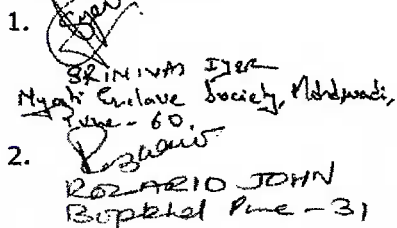 1.
Iyer
SRINIVAS IYER
Nyati Enclave Society, Mohdwadi,
Pune - 60.
2.
Rozario
ROZARIO JOHN
Bopkhel Pune - 31